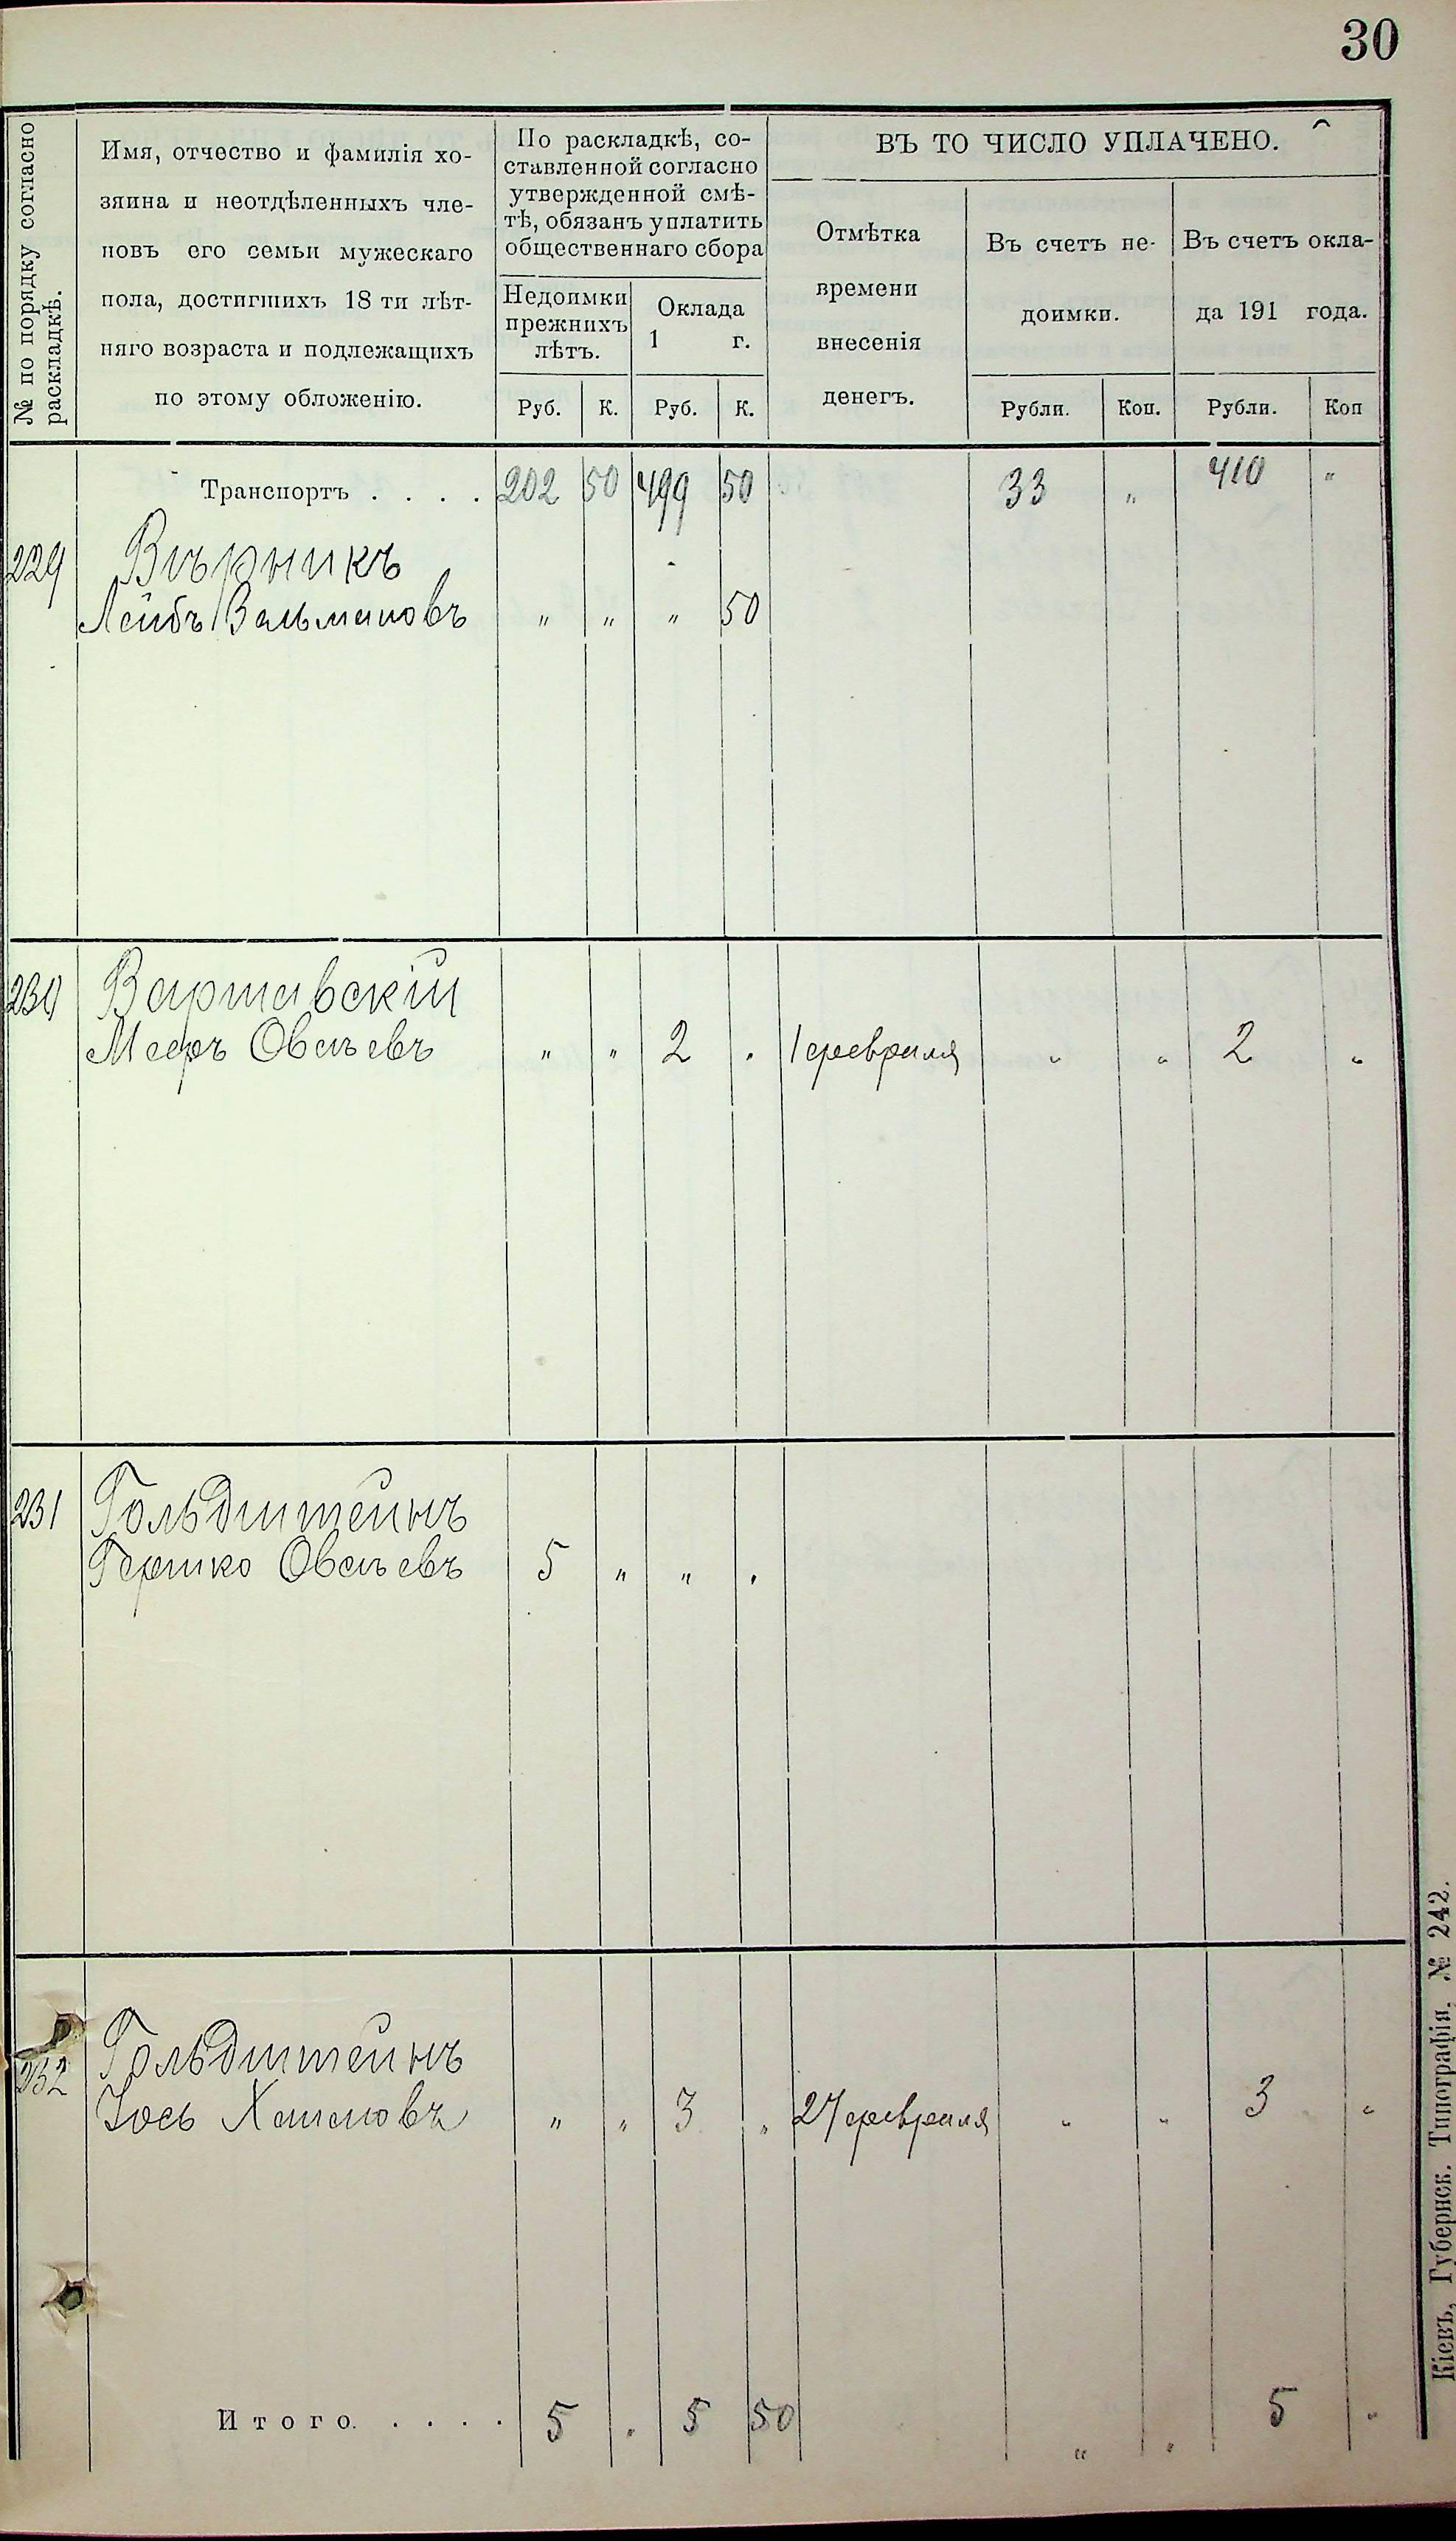 30
№ по порядку согласно
раскладкѣ.
Имя, отчество и фамилія хо-
зяина и неотдѣленныхъ чле-
новъ его семьи мужескаго
пола, достигшихъ 18 ти лѣт-
няго возраста и подлежащихъ
по этому обложенію.
По раскладкѣ, со-
ставленной согласно
утвержденной смѣ-
тѣ, обязанъ уплатить
общественнаго сбора
Недоимки
прежнихъ
лѣтъ.
Оклада
1 г.
Руб. К. Руб. К.
ВЪ ТО ЧИСЛО УПЛАЧЕНО.
Отмѣтка
времени
внесенія
денегъ.
Въ счетъ не-
доимки.
Въ счетъ окла-
да 191 года.
Рубли. Коп. Рубли. Коп
Транспортъ . . . . 202 50 499 50 33 „ 410 „
229 Вѣрникъ
Лейбъ Зельмановъ „ „ „ 50
230 Варшавскій
Мееръ Овсѣевъ „ „ 2 „ 1 февраля „ „ 2 „
231 Гольдштейнъ
Гершко Овсѣевъ 5 „ „ „
232 Гольдштейнъ
Іось Хаимовъ „ „ 3 „ 27 февраля „ „ 3 „
Итого. . . . . 5 „ 5 50 „ „ 5 „
Кіевъ, Губернск. Типографія. № 242.